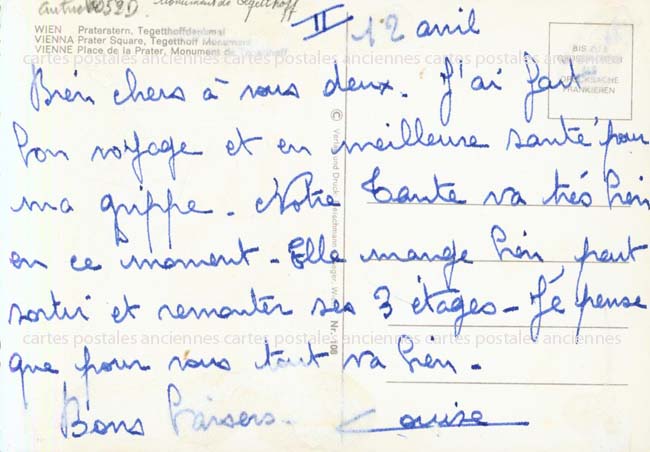 Autriche 1052D Monument de Tegetthoff
II 12 avril
WIEN Praterstern, Tegetthoffdenkmal
VIENNA Prater Square, Tegetthoff Monument
VIENNE Place de la Prater, Monument de Tegetthoff
BIS
DRUCKSACHE
FRANKIEREN
cartes postales anciennes cartes postales anciennes cartes postales anciennes
Bien chers à vous deux. J'ai fait
bon voyage et en meilleure santé pour
ma grippe. Notre Tante va très bien
en ce moment - Elle mange bien peut
sortir et remonter ses 3 étages - Je pense
que pour vous tout va bien -
Bons baisers. Louise
© Verlag und Druck Nr. 108
cartes postales anciennes cartes postales anciennes cartes postales anciennes